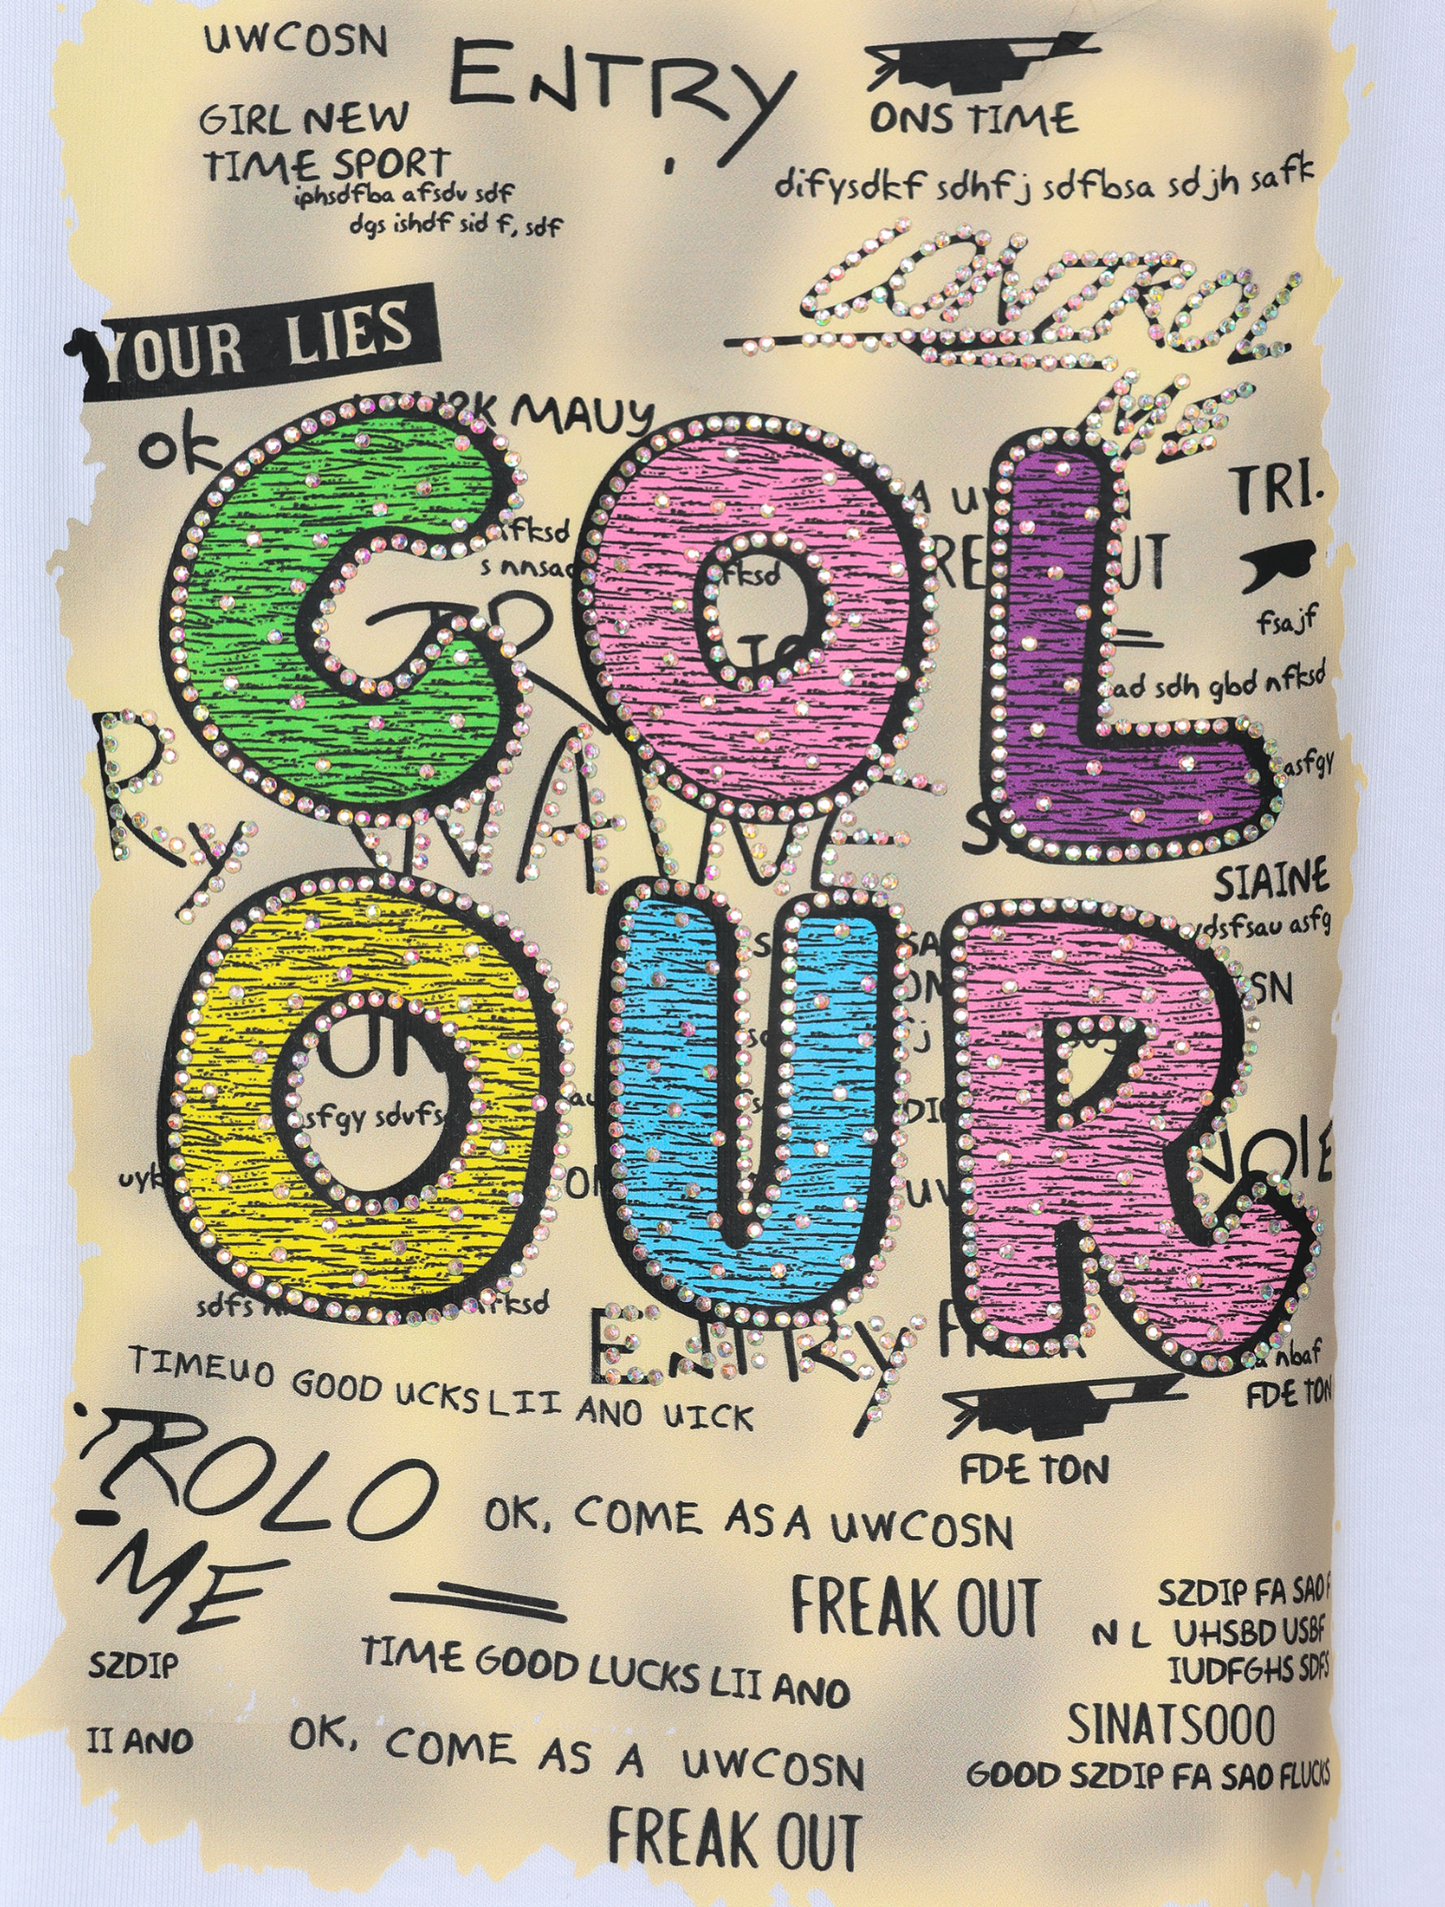 UWCOSN
ENTRY
ONS TIME
GIRL NEW
TIME SPORT
iphsdfba afsdv sdf
dgs ishdf sid f, sdf
difysdkf sdhfj sdfbsa sdjh safk
CONTROL
ME
YOUR LIES
ok
MAUY
TRI.
COL
OUR
fksd
s nnsad
fksd
fsajf
ad sdh gbd nfksd
asfgy
RY
SIAINE
ydsfsau asfg
sfgy sdvfs
ENTRY
nbaf
FDE TON
TIMEUO GOOD UCKS LII ANO UICK
FDE TON
TROLO
ME
OK, COME AS A UWCOSN
FREAK OUT
SZDIP FA SAO F
N L UHSBD USBF
IUDFGHS SDFS
SZDIP
TIME GOOD LUCKS LII ANO
SINATSOOO
II ANO
OK, COME AS A UWCOSN
GOOD SZDIP FA SAO FLUCKS
FREAK OUT